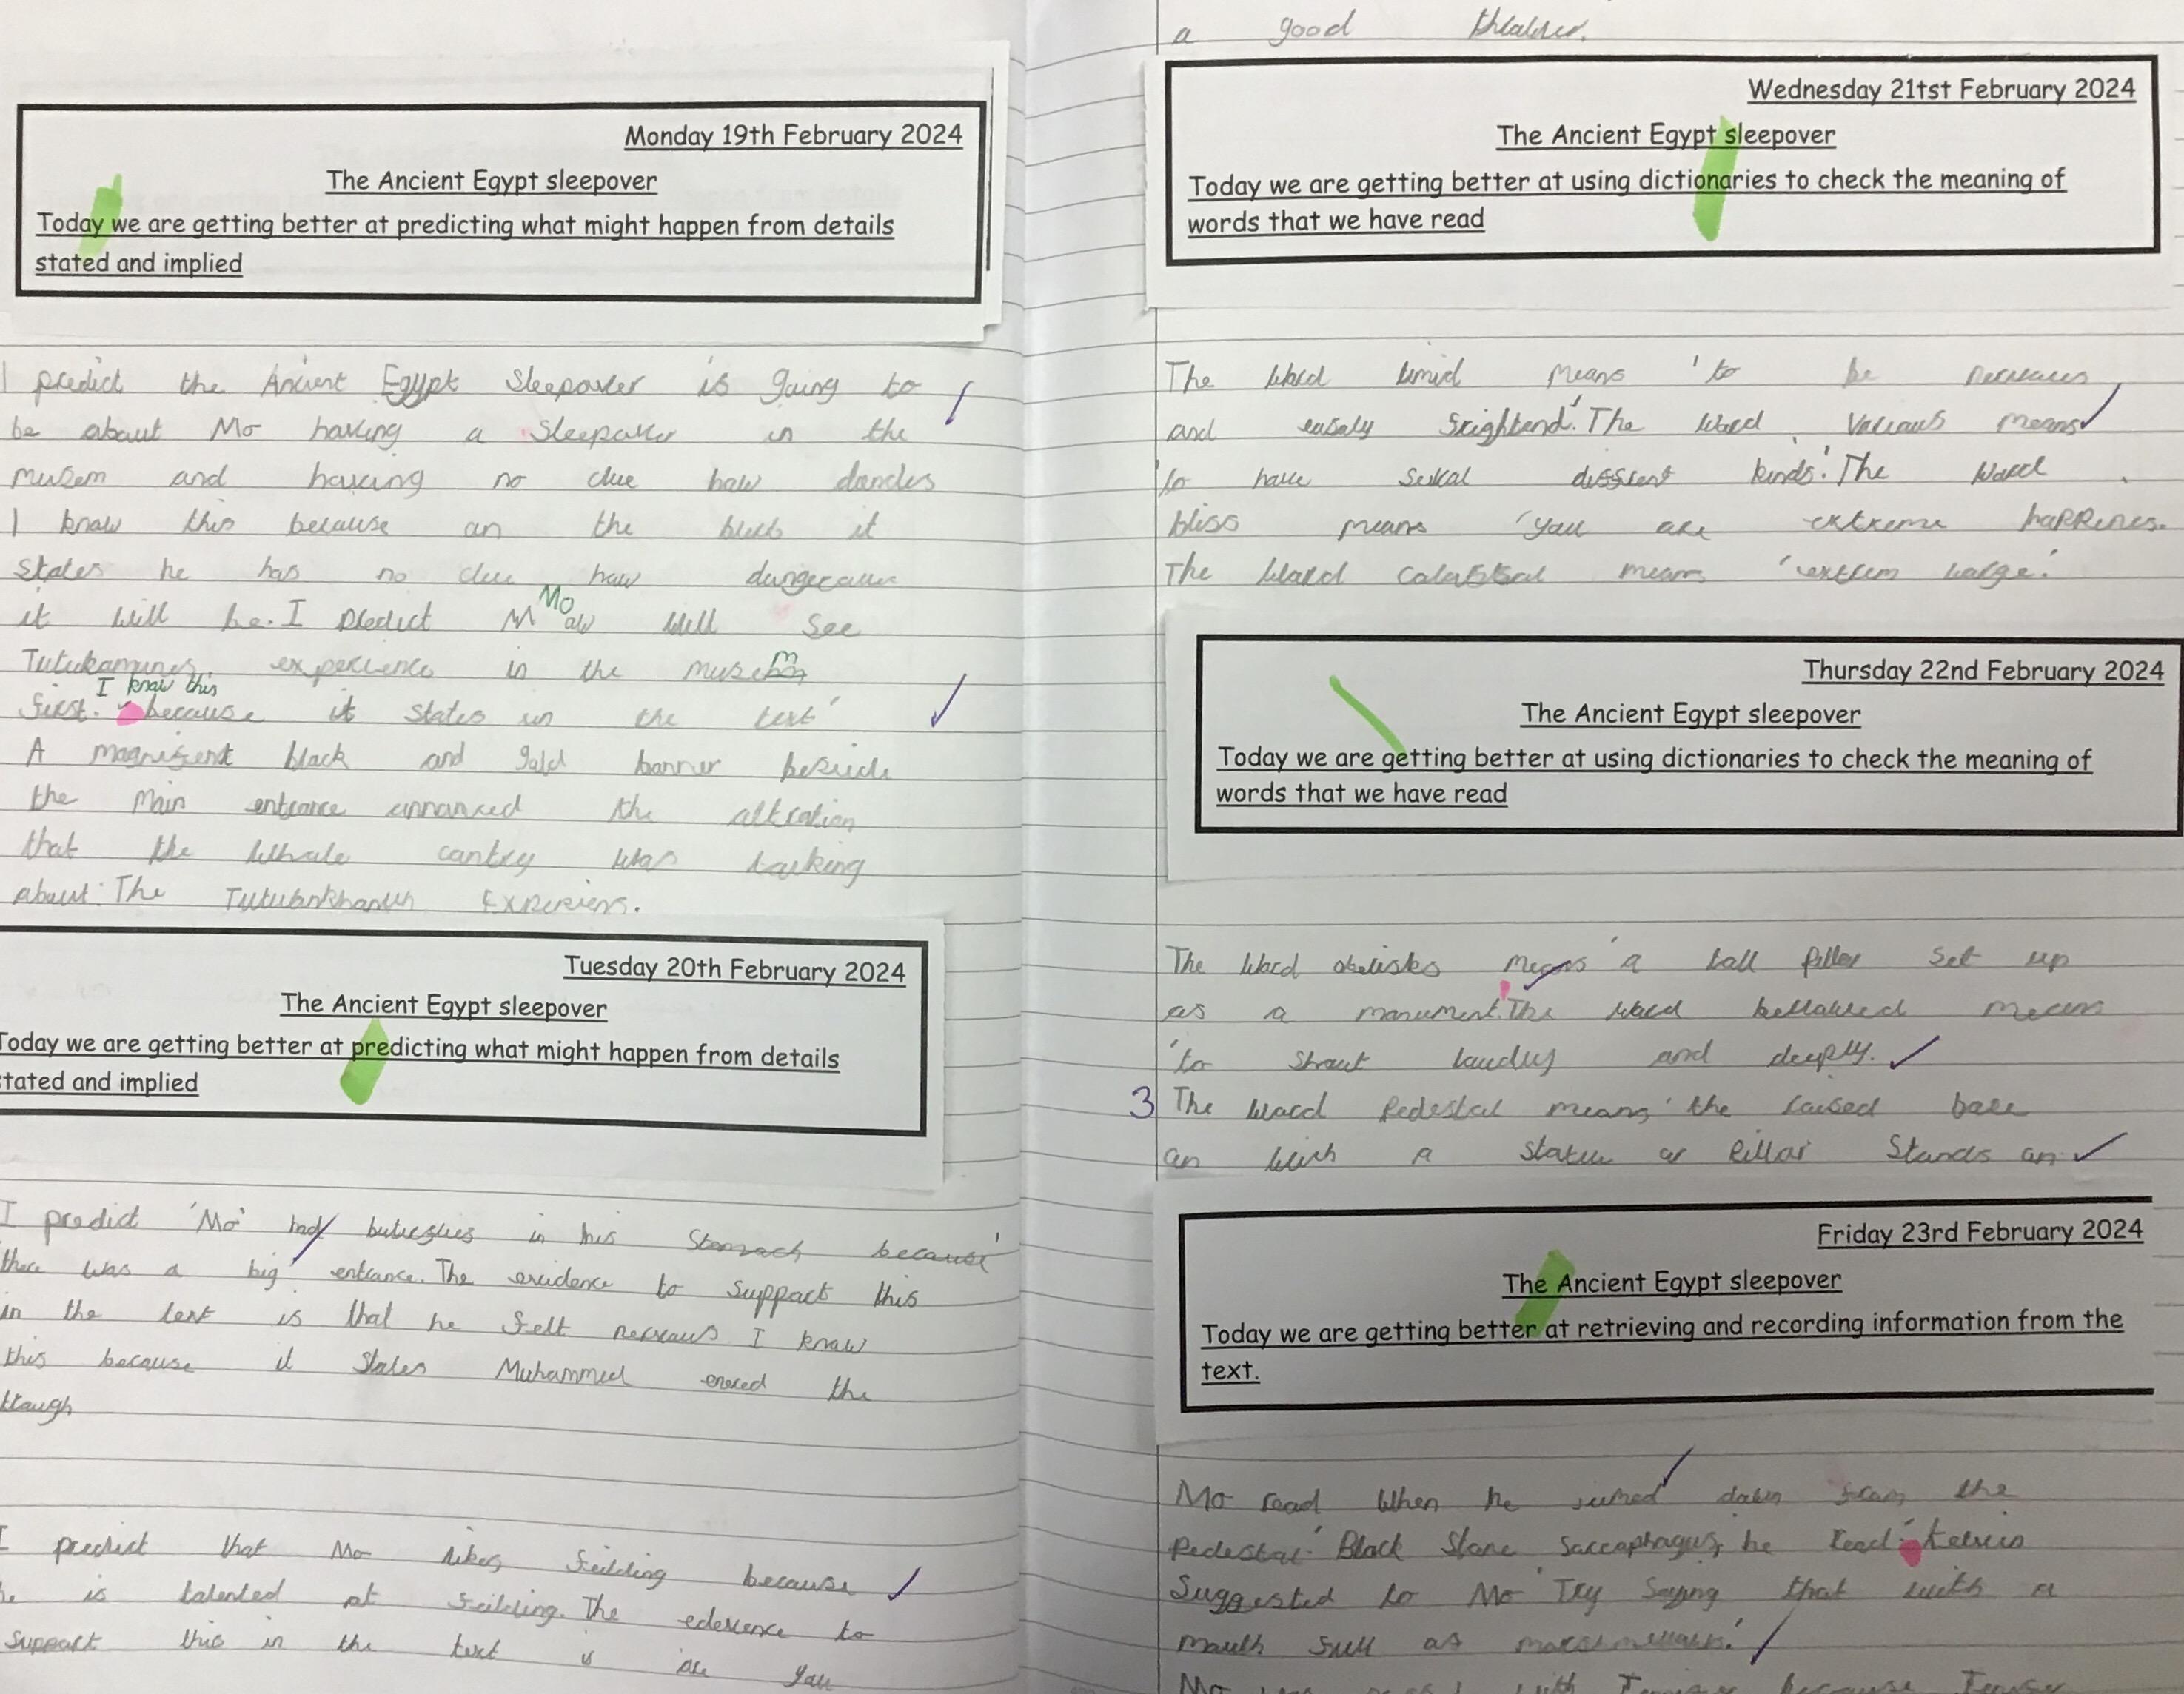 Monday 19th February 2024
The Ancient Egypt sleepover
Today we are getting better at predicting what might happen from details
stated and implied
I predict the Ancient Egypt Sleepover is going to
be about Mo having a Sleepover in the
musem and having no clue how
I know this because on the blurb it
States he has no clue how
it will be. I predict Mo will See
experience in the museum
first. I know this because it states in the text '
A black and gold banner beside
the Main entrance the
that the whole was talking
about: The
Tuesday 20th February 2024
The Ancient Egypt sleepover
Today we are getting better at predicting what might happen from details
stated and implied
I predict 'Mo' had in his Stomach because'
there was a big entrance. The to Support this
in the text is that he felt nervous I know
this because it States Muhammed the
I predict that Mo likes feilding because
he is talented at feilding. The to
Support this in the text is are you
a good
Wednesday 21tst February 2024
The Ancient Egypt sleepover
Today we are getting better at using dictionaries to check the meaning of
words that we have read
The Word timid means 'to be
and easaly frightend'. The word means
'to have kinds'. The Word
bliss means 'you are extreme happines.
The Word means 'extrem large'.
Thursday 22nd February 2024
The Ancient Egypt sleepover
Today we are getting better at using dictionaries to check the meaning of
words that we have read
The Word obelisks means 'a tall piller set up
as a monument'. The Word bellowed means
'to shout loudly and deeply.
3 The Word Pedestal means 'the raised base
on wich a Statue or Pillar Stands on
Friday 23rd February 2024
The Ancient Egypt sleepover
Today we are getting better at retrieving and recording information from the
text.
Mo read When he down from the
Pedestal 'Black Stone he read'
Suggested to Mo 'Try Saying that with a
full
Mo with because